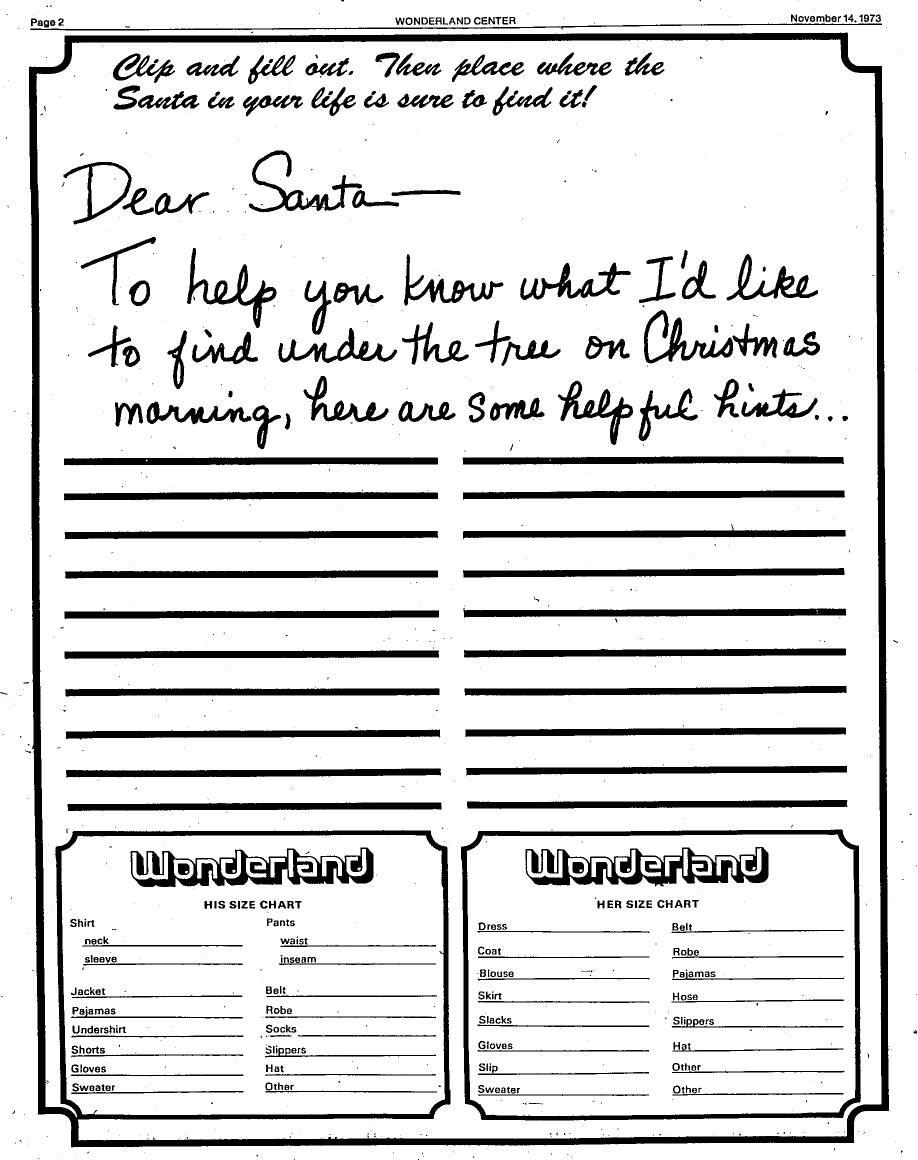 Page 2
WONDERLAND CENTER
November 14, 1973
Clip and fill out. Then place where the
Santa in your life is sure to find it!
Dear Santa—
To help you know what I'd like
to find under the tree on Christmas
morning, here are some helpful hints...
Wonderland
HIS SIZE CHART
Shirt
neck
sleeve
Jacket
Pajamas
Undershirt
Shorts
Gloves
Sweater
Pants
waist
inseam
Belt
Robe
Socks
Slippers
Hat
Other
Wonderland
HER SIZE CHART
Dress
Coat
Blouse
Skirt
Slacks
Gloves
Slip
Sweater
Belt
Robe
Pajamas
Hose
Slippers
Hat
Other
Other